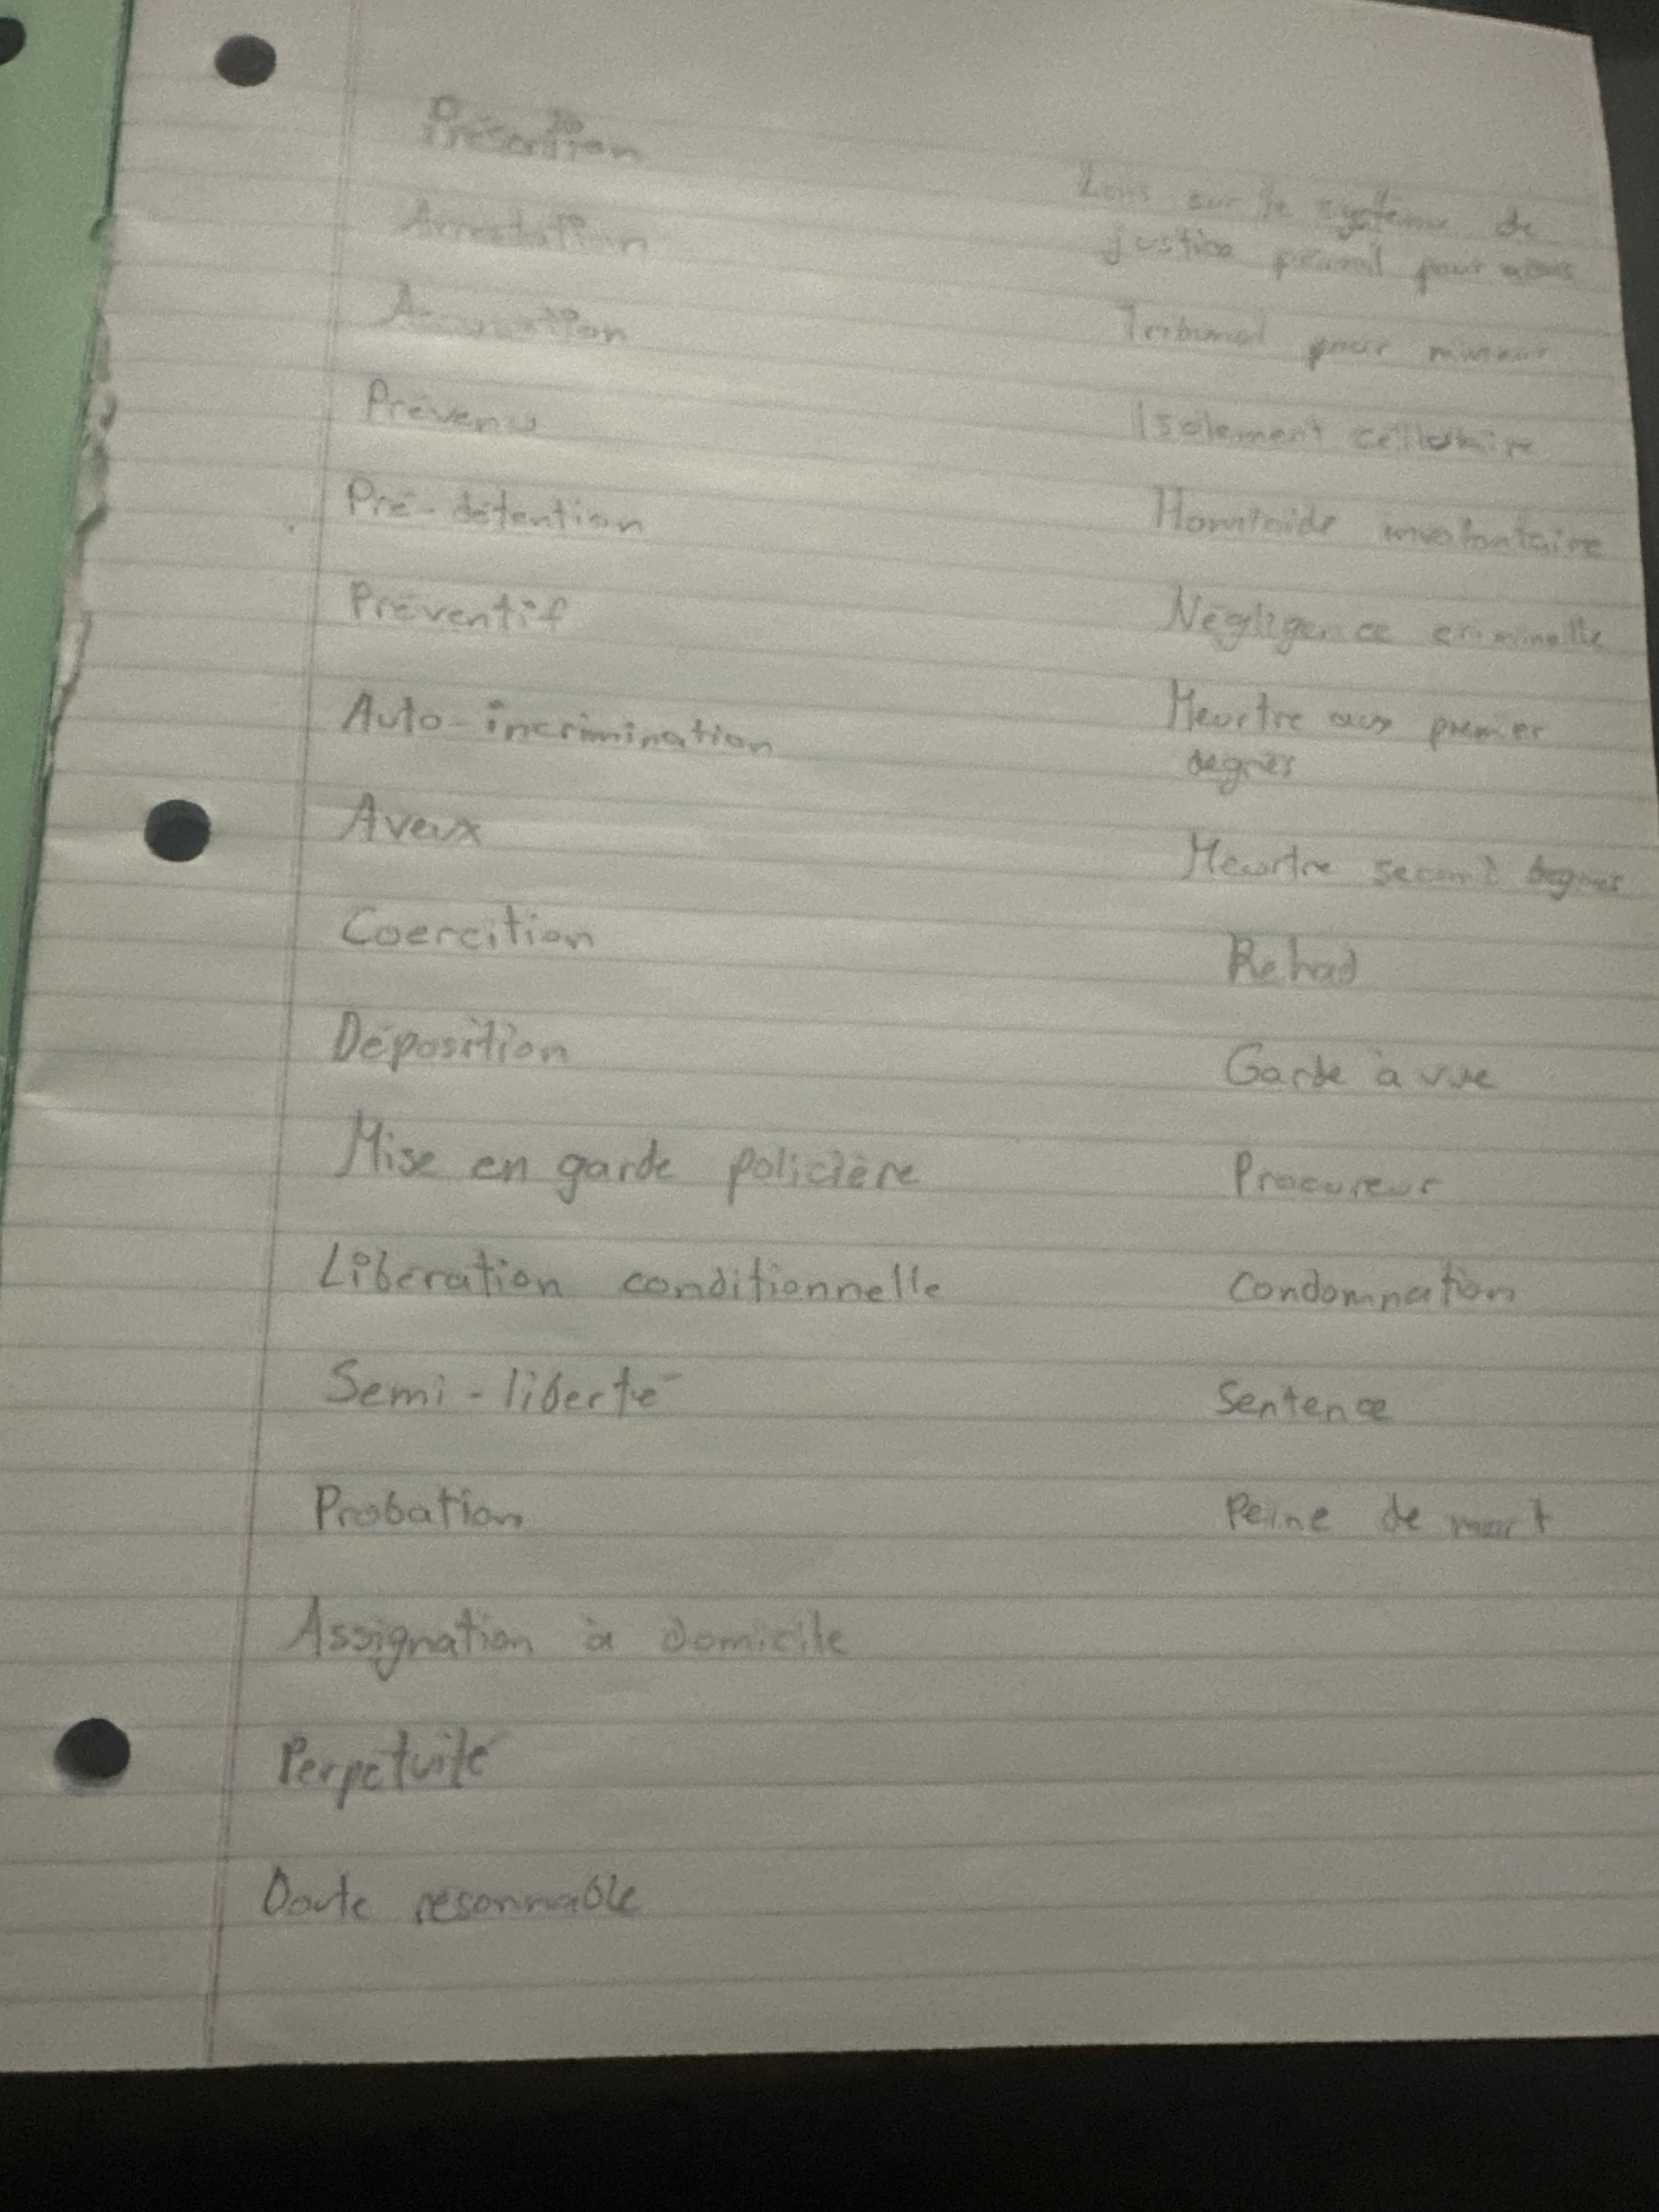 Arrestation
Prévenu
Pré-détention
Préventif
Auto-incrimination
Aveux
Coercition
Déposition
Mise en garde policière
Libération conditionnelle
Semi-liberté
Probation
Assignation à domicile
Perpétuité
Doute résonnable
Lois sur le système de
justice pour
Tribunal pour mineur
Isolement cellulaire
Homicide involontaire
Négligence criminelle
Meurtre aux premier
degrés
Meurtre second degrés
Rehad
Garde à vue
Procureur
Condamnation
Sentence
Peine de mort